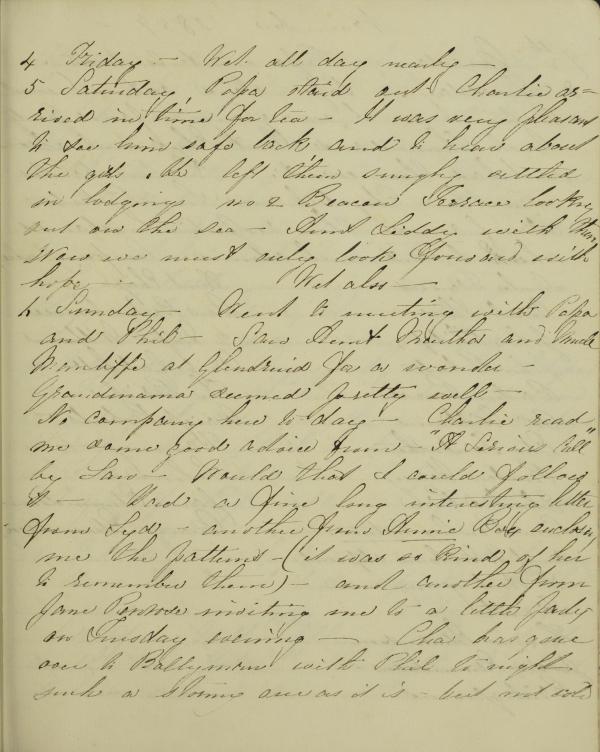 4 Friday - Wet all day nearly -
5 Saturday, Papa staid out Charlie ar=
rived in time for tea - It was very pleasant
to see him safe back and to hear about
the girls. He left them snugly settled
in lodgings no 2 Beacon Terrace looking
out on the sea - Aunt Liddy with them
Now we must only look forward with
hope - Wet also -
6 Sunday - Went to meeting with Papa
and Phil - Saw Aunt Martha and Uncle
Wancliffe at Glendruid for a wonder -
Grandmama seemed pretty well -
No company here to day - Charlie read
me some good advice from - "A Serious Call"
by Law - Would that I could follow
it - Had a fine long interesting letter
from Syd - another from Annie Boy enclosing
me the patterns - (it was so kind of her
to remember them) - and another from
Jane Penrose inviting me to a little party
on Tuesday evening - Cha has gone
over to Ballyman with Phil to night
such a stormy one as it is - but not cold